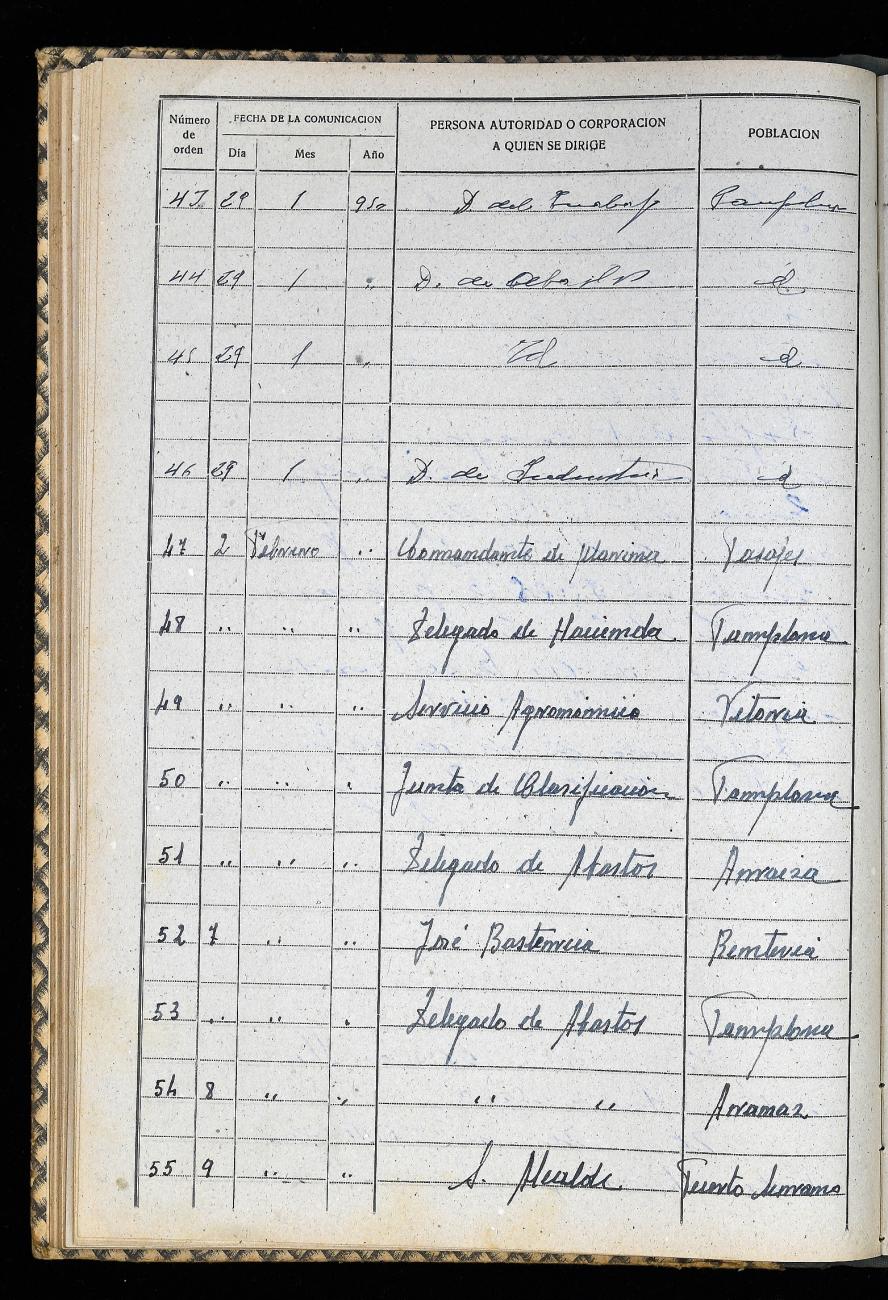 Número de orden | FECHA DE LA COMUNICACION | PERSONA AUTORIDAD O CORPORACION A QUIEN SE DIRIGE | POBLACION
Día | Mes | Año
43 29 1 952 D del Trabajo Pamplona
44 29 1 " D. de Abastos id
45 29 1 " Id id
46 29 1 " D. de Industria id
47 2 Febrero " Comandante de Marina Pasajes
48 " " " Delegado de Hacienda Pamplona
49 " " " Servicio Agronómico Vitoria
50 " " " Junta de Clasificación Pamplona
51 " " " Delegado de Abastos Arraiza
52 7 " " José Bastencia
53 " " " Delegado de Abastos Pamplona
54 8 " " " "
55 9 " " S. Alcalde Puerto Serrano